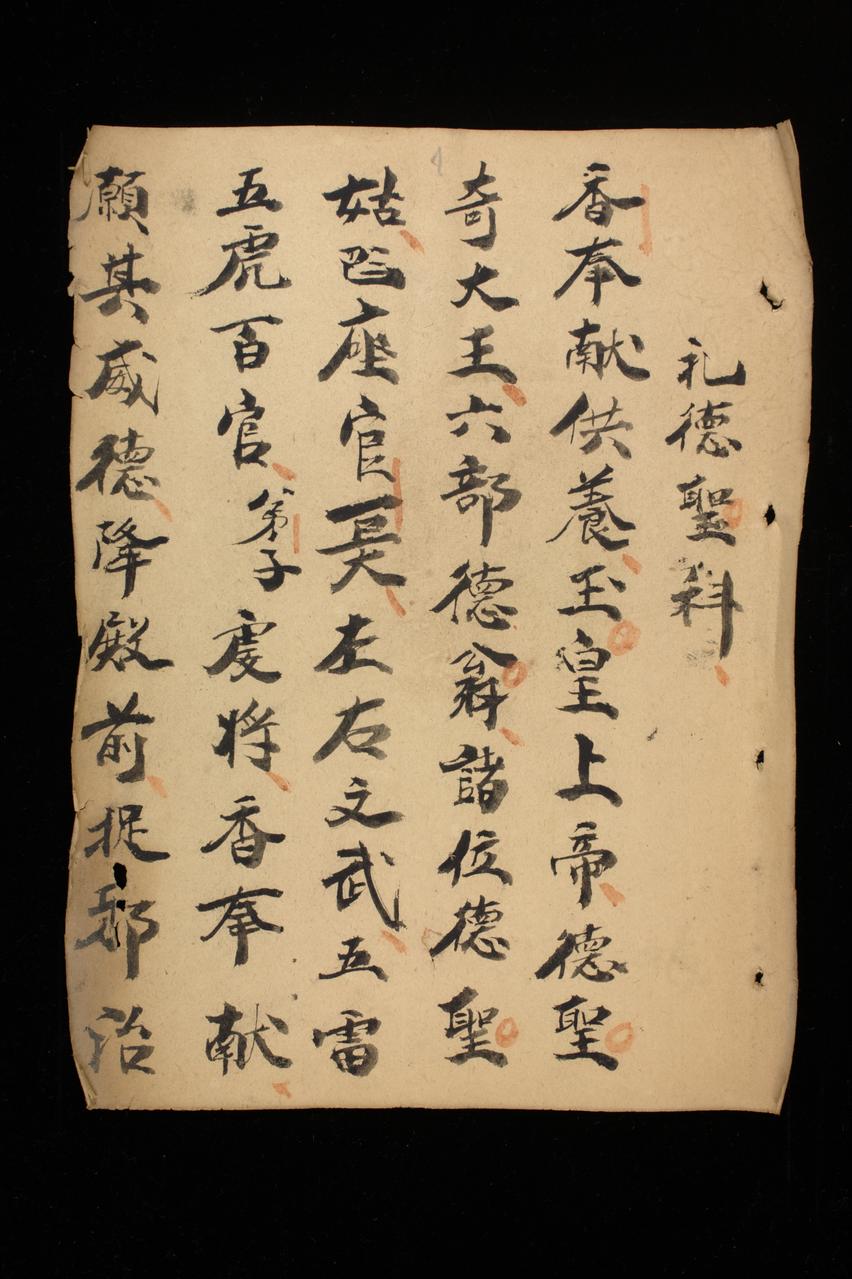 礼德聖科
香奉献供養玉皇上帝德聖
奇大王六部德翁諸位德聖
姑座官左右文武五雷
五虎百官弟子虔将香奉献
願其威德降殿前捉邪治